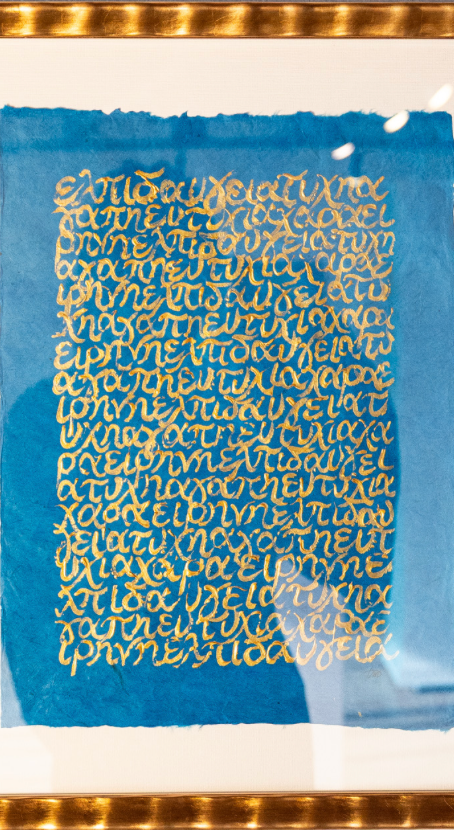 ελπιδαυγειατυχηα
γαπηευτυχιαχαραει
ρηνηελπιδαυγειατυχη
αγαπηευτυχιαχαραε
ιρηνηελπιδαυγειατυ
χηαγαπηευτυχιαχαρα
ειρηνηελπιδαυγειατυ
αγαπηευτυχιαχαραε
ιρηνηελπιδαυγειατ
υχηαγαπηευτυχιαχα
ραειρηνηελπιδαυγει
ατυχηαγαπηευτυχια
χαραειρηνηελπιδαυ
γειατυχηαγαπηευτ
υχιαχαραειρηνηε
λπιδαυγειατυχηα
γαπηευτυχιαχαραε
ιρηνηελπιδαυγεια